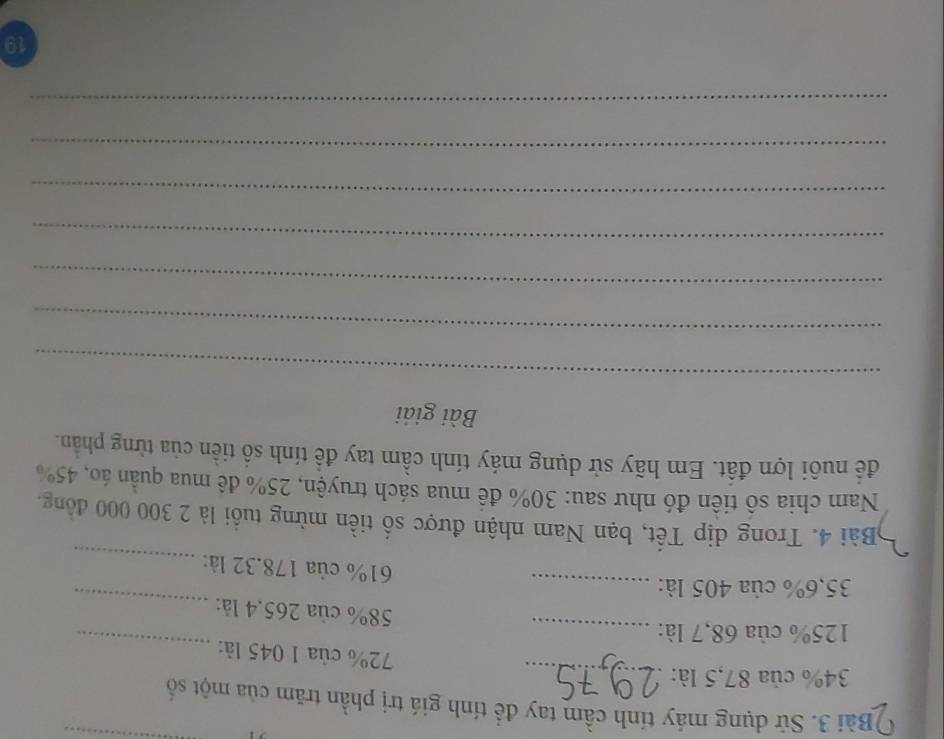 Bài 3. Sử dụng máy tính cầm tay để tính giá trị phần trăm của một số
34% của 87,5 là: 29,75
72% của 1 045 là:
125% của 68,7 là:
58% của 265,4 là:
35,6% của 405 là:
61% của 178.32 là:
Bài 4. Trong dịp Tết, bạn Nam nhận được số tiền mừng tuổi là 2 300 000 đồng.
Nam chia số tiền đó như sau: 30% để mua sách truyện, 25% để mua quần áo, 45%
để nuôi lợn đất. Em hãy sử dụng máy tính cầm tay để tính số tiền của từng phần.
Bài giải
19